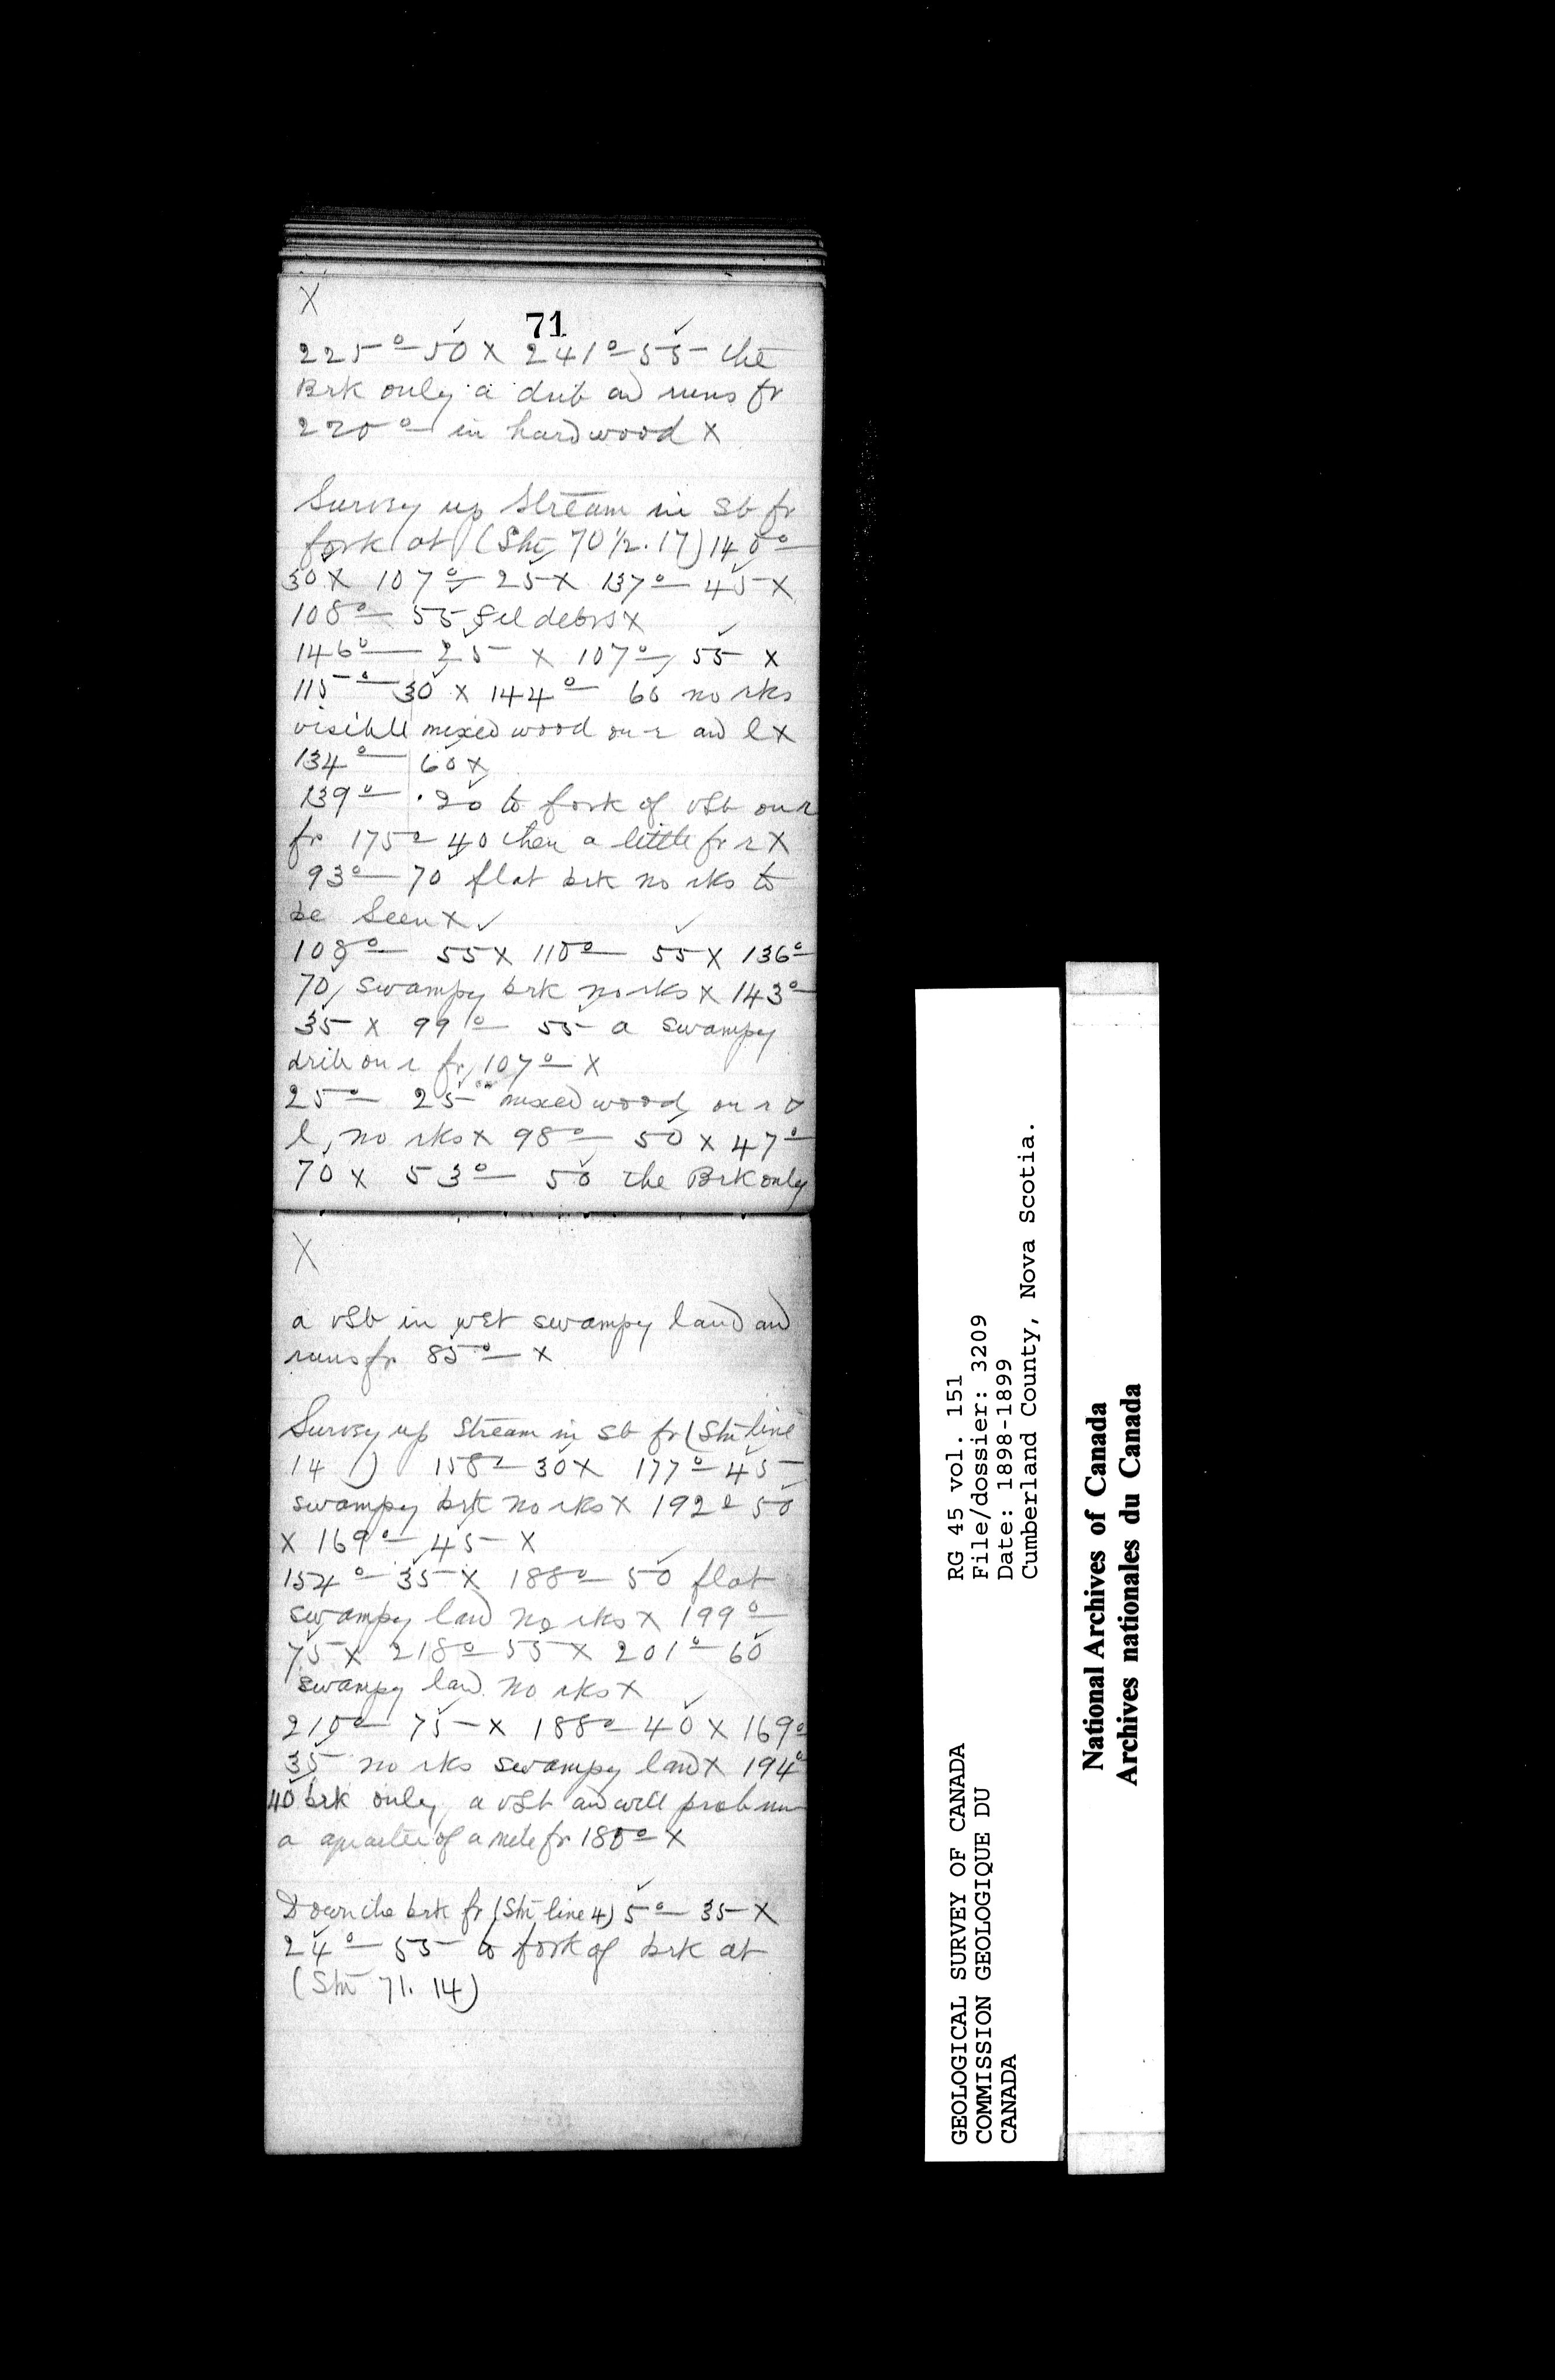 X
71
225°-50 X 241°-55 the
Brk only a drib and runs fr
220° in hardwood X
Survey up Stream in Sb fr
fork at (Sht 70 1/2.17) 140°-
30 X 107°- 25 X 137°- 45 X
108°- 55 debris X
146°- 25 X 107°- 55 X
115°- 30 X 144°- 60 no rks
visible mixed wood on r and l X
134°- 60 X
139°- 20 to fork of vSb on r
fr 175°- 40 then a little fr r X
93°- 70 flat brk no rks to
be Seen X
108°- 55 X 110°- 55 X 136°-
70 swampy brk no rks X 143°-
35 X 99°- 55 a swampy
drib on r fr 107°- X
25°- 25 mixed wood on r &
l, no rks X 98°- 50 X 47°-
70 X 53°- 50 the Brk only
X
a vSb in wet swampy land and
runs fr 85°- X
Survey up Stream in Sb fr (Sht line
14 ) 158°- 30 X 177°- 45
swampy brk no rks X 192°- 50
X 169°- 45 X
154°- 35 X 188°- 50 flat
swampy land no rks X 199°-
75 X 218°- 55 X 201°- 60
swampy land no rks X
210°- 75 X 188°- 40 X 169°
35 no rks swampy land X 194°
40 brk only a vSb and will prob run
a quarter of a mile fr 180°- X
Down the brk fr (Sht line 4) 5°- 35 X
24°- 55 to fork of brk at
(Sht 71. 14)
GEOLOGICAL SURVEY OF CANADA
COMMISSION GEOLOGIQUE DU
CANADA
RG 45 vol. 151
File/dossier: 3209
Date: 1898-1899
Cumberland County, Nova Scotia.
National Archives of Canada
Archives nationales du Canada